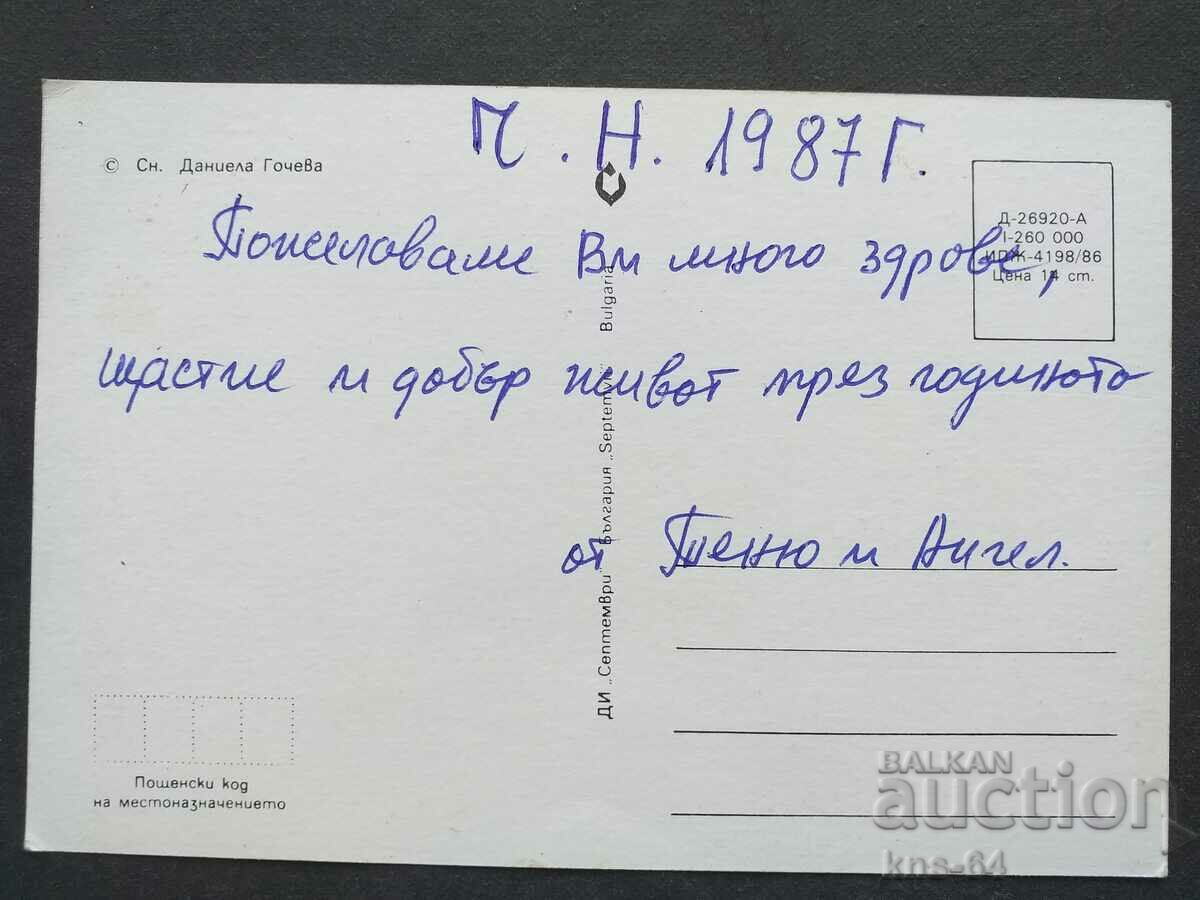 Ч. Н. 1987 Г.
© Сн. Даниела Гочева
Д-26920-А
I-260 000
ИДЖ-4198/86
Цена 14 ст.
Пожелаваме Ви много здраве,
щастие и добър живот през годината
от Теню и Ангел.
ДИ „Септември" България „Septemvri" Bulgaria
Пощенски код
на местоназначението
BALKAN
auction
kns-64